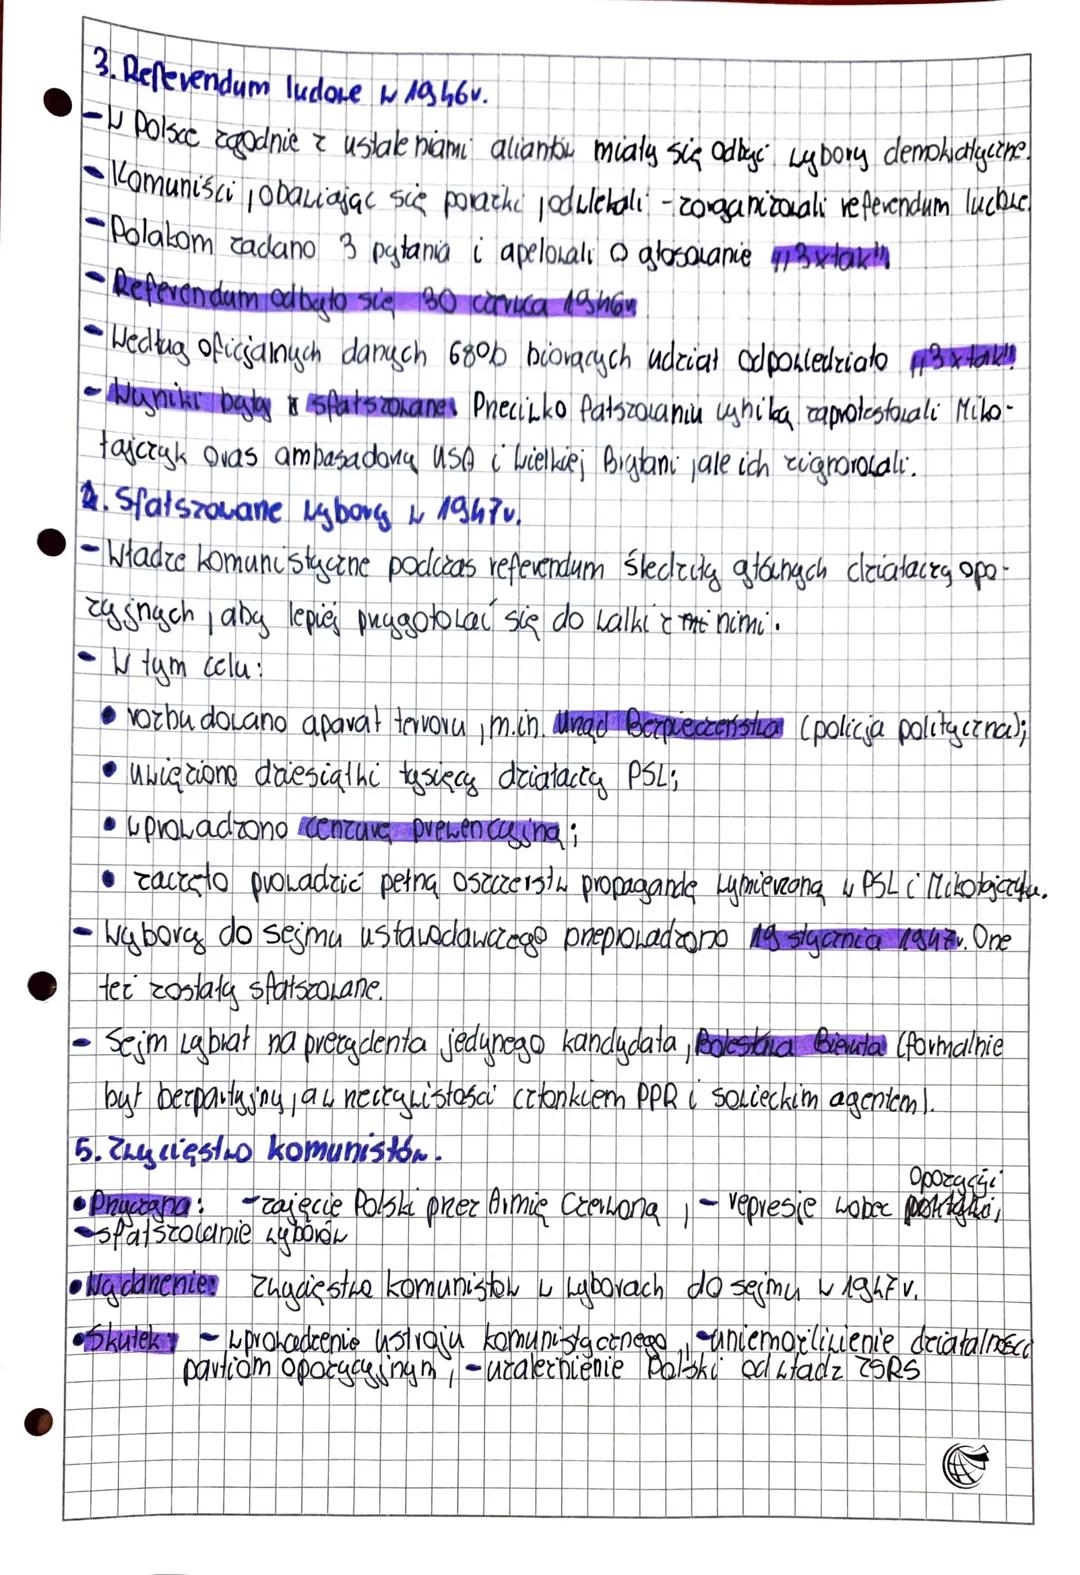 3. Referendum ludowe w 1946r.
- W Polsce zgodnie z ustaleniami aliantów miały się odbyć wybory demokratyczne.
- Komuniści, obawiając się porażki, odwlekali - zorganizowali referendum ludowe.
- Polakom zadano 3 pytania i apelowali o głosowanie „3xtak"
- Referendum odbyło się 30 czerwca 1946r
- Według oficjalnych danych 68% biorących udział odpowiedziało „3xtak"
- Wyniki były sfałszowane. Przeciwko fałszowaniu wynika zaprotestowali Miko-
łajczyk oraz ambasadorzy USA i Wielkiej Brytani, ale ich zignorowali.
4. Sfałszowane wybory w 1947r.
- Władze komunistyczne podczas referendum śledziły głównych działaczy opo-
zyjnych, aby lepiej przygotować się do walki z nimi.
- W tym celu:
• rozbudowano aparat terroru, m.in. Urząd Bezpieczeństwa (policja polityczna);
• uwięziono dziesiątki tysięcy działaczy PSL;
• wprowadzono cenzurę prewencyjną;
• zaczęto prowadzić pełną oszczerstw propagandę wymierzoną w PSL i Mikołajczyka.
- Wybory do sejmu ustawodawczego przeprowadzono 19 stycznia 1947r. One
też zostały sfałszowane.
- Sejm wybrał na prezydenta jedynego kandydata, Bolesława Bieruta (formalnie
był bezpartyjny, a w rzeczywistości członkiem PPR i sowieckim agentem).
5. Zwycięstwo komunistów.
• Przyczyna: - zajęcie Polski przez Armię Czerwoną, - represje wobec opozycji,
- sfałszowanie wyborów
• Wydarzenie: zwycięstwo komunistów w wyborach do sejmu w 1947r.
• Skutek: - wprowadzenie ustroju komunistycznego, - uniemożliwienie działalności
partiom opozycyjnym, - uzależnienie Polski od władz ZSRS